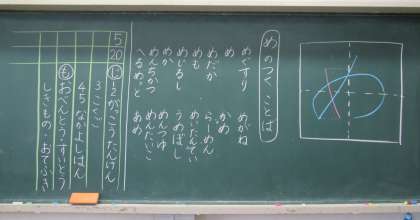 めのつくことば
めぐすり
め
めだか
めも
めじるし
めんちかつ
へるめっと
めがね
かめ
らーめん
めいたんてい
うめぼし
めんつゆ
めんたいこ
あめ
5
20
じ
12がっこうたんけん
3こくご
45なかよしはん
も おべんとう・すいとう
しきもの・おてふき